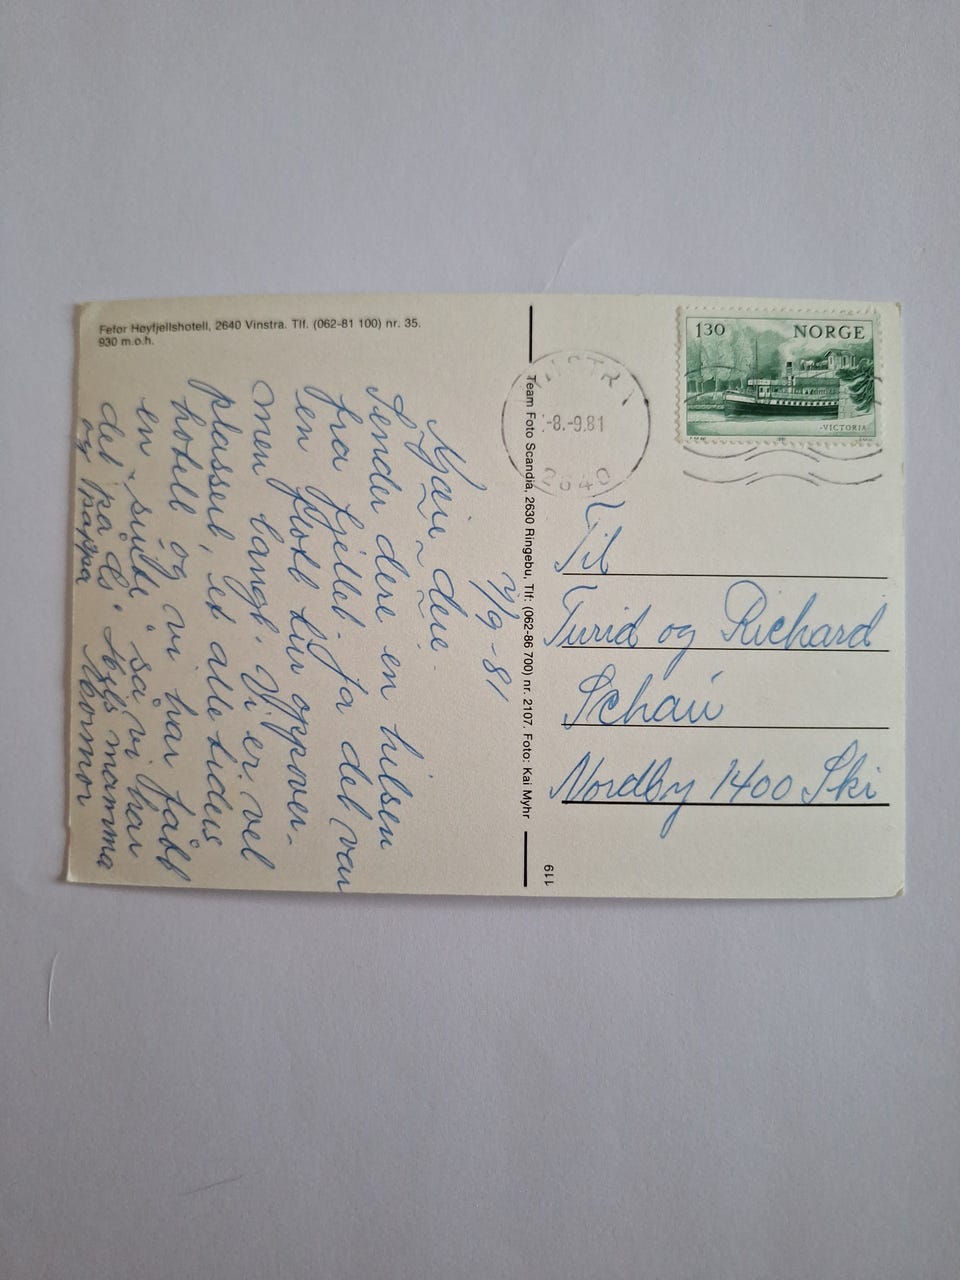 Fefor Høyfjellshotell, 2640 Vinstra. Tlf. (062-81 100) nr. 35.
930 m.o.h.
7/9-81
Kjære dere.
Sender dere en hilsen
fra fjellet. Ja det var
en flott tur oppover-
men langt. Vi er vel
plassert, et alle tiders
hotell og vi har fått
en "suite" så vi har
det på ds. Hils mamma
og pappa Mormor
Team Foto Scandia, 2630 Ringebu, Tlf: (062-86 700) nr. 2107. Foto: Kai Myhr
119
130 NORGE
-VICTORIA
VINSTRA
-8.-9.81
2640
Til
Turid og Richard
Schau
Nordby 1400 Ski